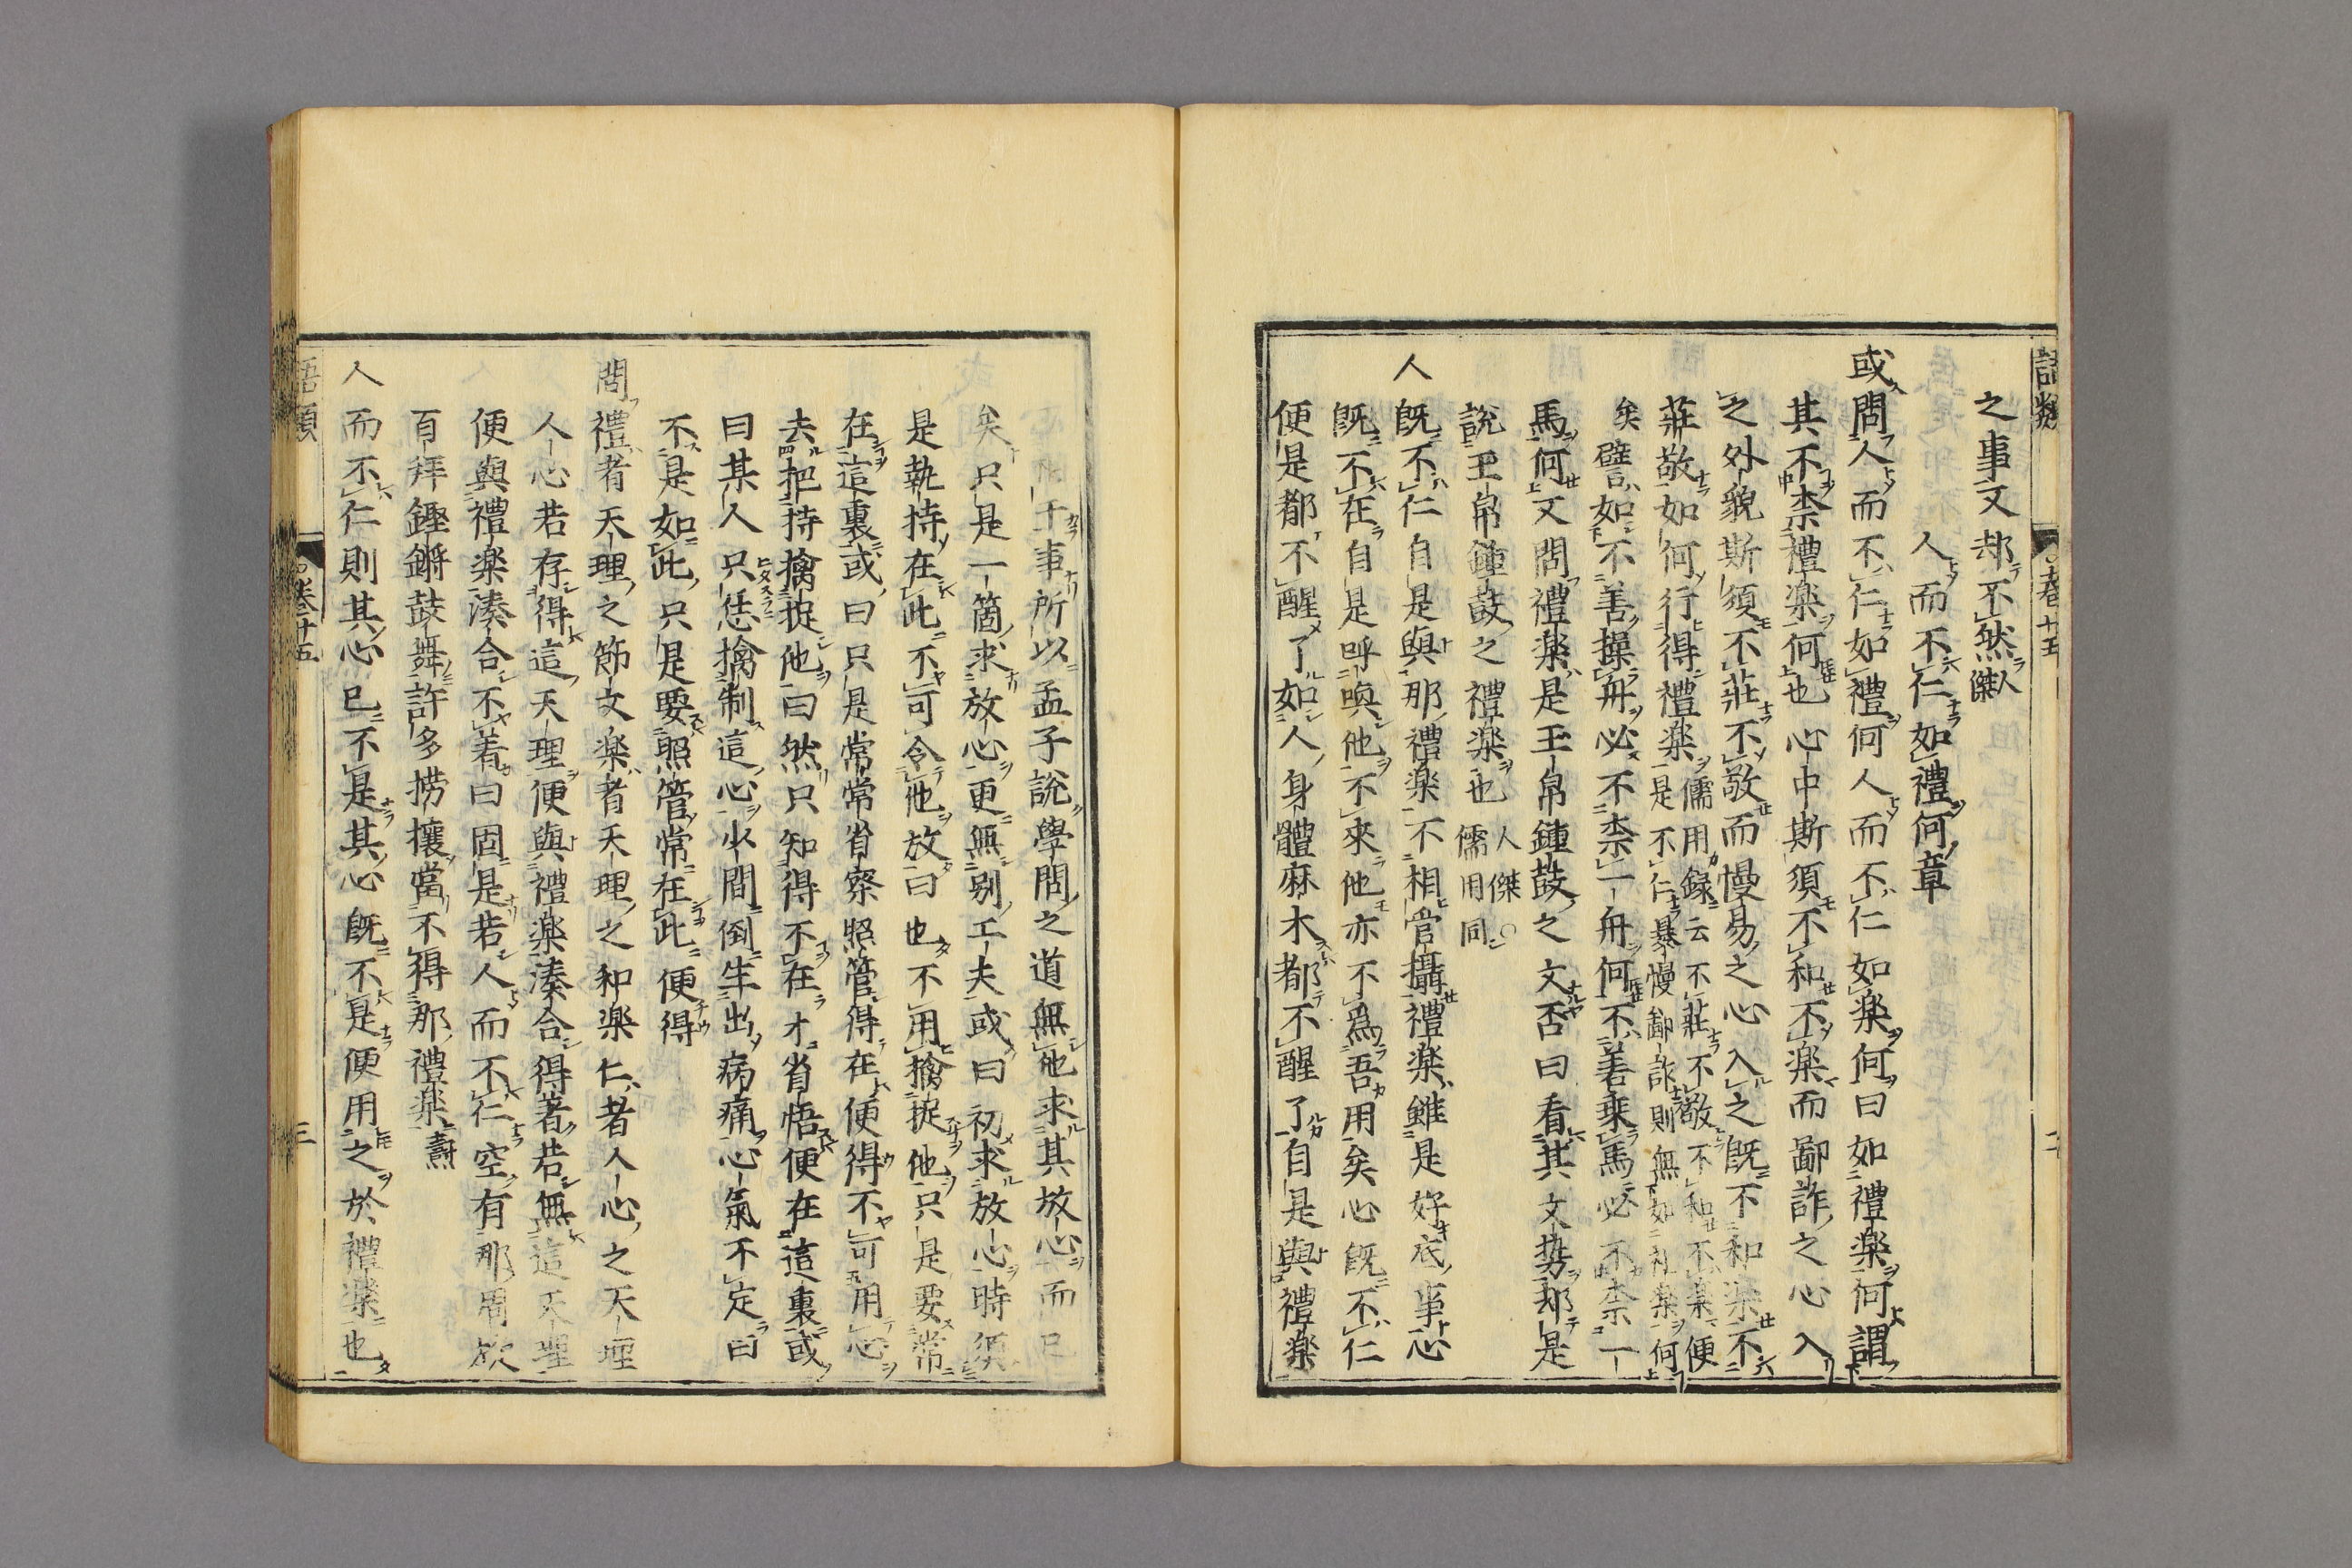 語類
卷十五
二
之事文却不然人傑
人而不仁如禮何章
或問人而不仁如禮何人而不仁如樂何曰如禮樂何謂
其不柰禮樂何也心中斯須不和不樂而鄙詐之心入
之外貌斯須不莊不敬而慢易之心入之既不和樂不
莊敬如何行得禮樂儒用錄云不莊不敬不和不樂便
是不仁暴慢鄙詐則無如礼樂何
矣譬如不善操舟必不柰一舟何不善乘馬必不柰一
馬何又問禮樂是玉帛鍾鼓之文否曰看其文勢却是
說玉帛鍾鼓之禮樂也人傑○
儒用同
人既不仁自是與那禮樂不相管攝禮樂雖是好底事心
既不在自是呼喚他不來他亦不爲吾用矣心既不仁
便是都不醒了如人身體麻木都不醒了自是與禮樂
干事所以孟子說學問之道無他求其放心而已
矣只是一箇求放心更無別工夫或曰初求放心時須
是執持在此不可令他放曰也不用擒捉他只是要常
在這裏或曰只是常常省察照管得在便得不可用心
去把持擒捉他曰然只知得不在才省悟便在這裏或
曰某人只恁擒制這心少間倒生出病痛心氣不定曰
不是如此只是要照管常在此便得
問禮者天理之節文樂者天理之和樂仁者人心之天理
人心若存得這天理便與禮樂湊合得著若無這天理
便與禮樂湊合不着曰固是若人而不仁空有那周旋
百拜鏗鏘鼓舞許多撈攘當不得那禮樂燾
人而不仁則其心已不是其心既不是便用之於禮樂也
語類
卷十五
三